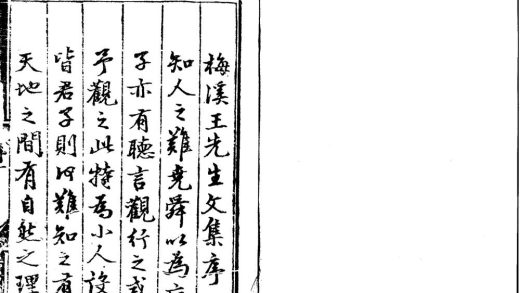 梅溪王先生文集序
知人之難堯舜以為
子亦有聽言觀行之
予觀之此特為小人設
皆君子則何難知之有
天地之間有自然之理